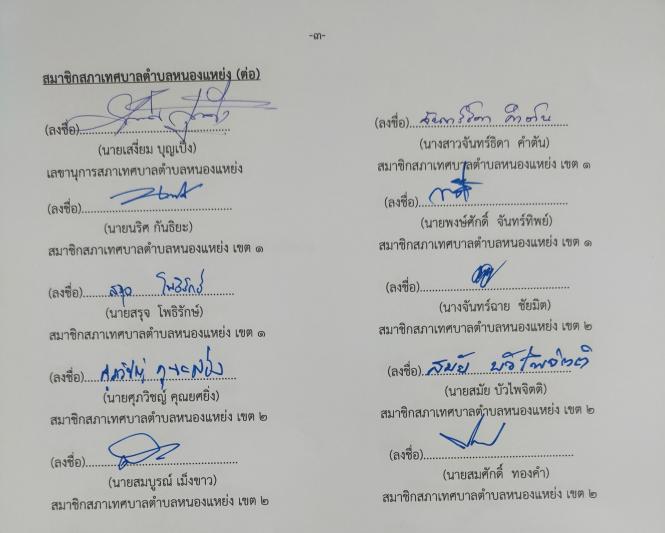 -๓-
สมาชิกสภาเทศบาลตำบลหนองแหย่ง (ต่อ)
(ลงชื่อ)
(นายเสงี่ยม บุญเป็ง)
เลขานุการสภาเทศบาลตำบลหนองแหย่ง
(ลงชื่อ)
(นายนริศ กันธิยะ)
สมาชิกสภาเทศบาลตำบลหนองแหย่ง เขต ๑
(ลงชื่อ) สรุจ โพธิรักษ์
(นายสรุจ โพธิรักษ์)
สมาชิกสภาเทศบาลตำบลหนองแหย่ง เขต ๑
(ลงชื่อ) ศุภวิชญ์
(นายศุภวิชญ์ คุณยศยิ่ง)
สมาชิกสภาเทศบาลตำบลหนองแหย่ง เขต ๒
(ลงชื่อ)
(นายสมบูรณ์ เม็งขาว)
สมาชิกสภาเทศบาลตำบลหนองแหย่ง เขต ๒
(ลงชื่อ) จันทร์ธิดา คำตัน
(นางสาวจันทร์ธิดา คำตัน)
สมาชิกสภาเทศบาลตำบลหนองแหย่ง เขต ๑
(ลงชื่อ)
(นายพงษ์ศักดิ์ จันทร์ทิพย์)
สมาชิกสภาเทศบาลตำบลหนองแหย่ง เขต ๑
(ลงชื่อ)
(นางจันทร์ฉาย ชัยมิต)
สมาชิกสภาเทศบาลตำบลหนองแหย่ง เขต ๒
(ลงชื่อ) สมัย บัวไพจิตติ
(นายสมัย บัวไพจิตติ)
สมาชิกสภาเทศบาลตำบลหนองแหย่ง เขต ๒
(ลงชื่อ)
(นายสมศักดิ์ ทองคำ)
สมาชิกสภาเทศบาลตำบลหนองแหย่ง เขต ๒